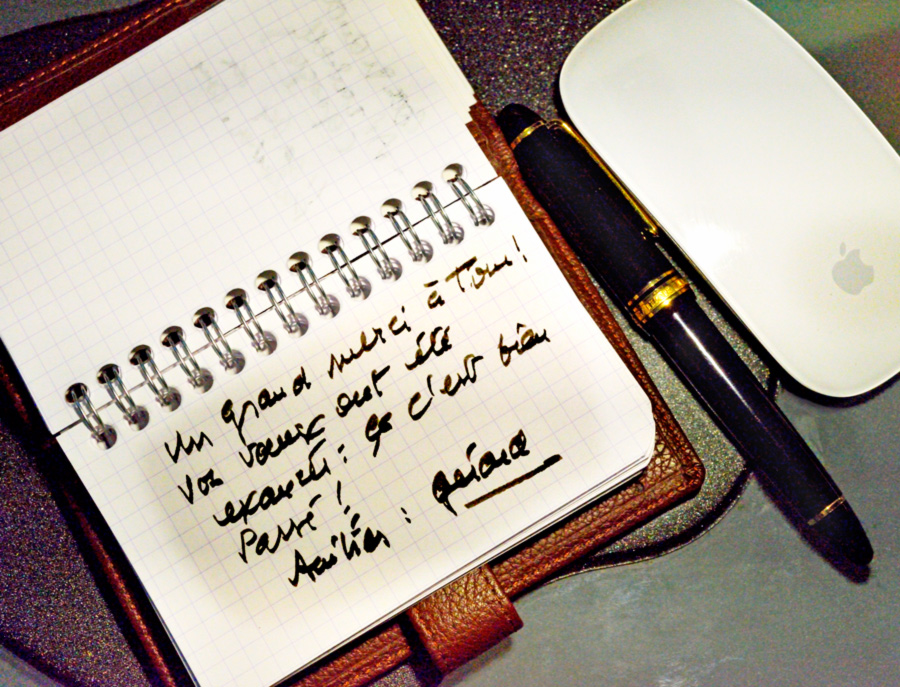 Un grand merci à Tous!
Vos voeux ont été
exaucés: ça c'est bien
Passé!
Amitiés: